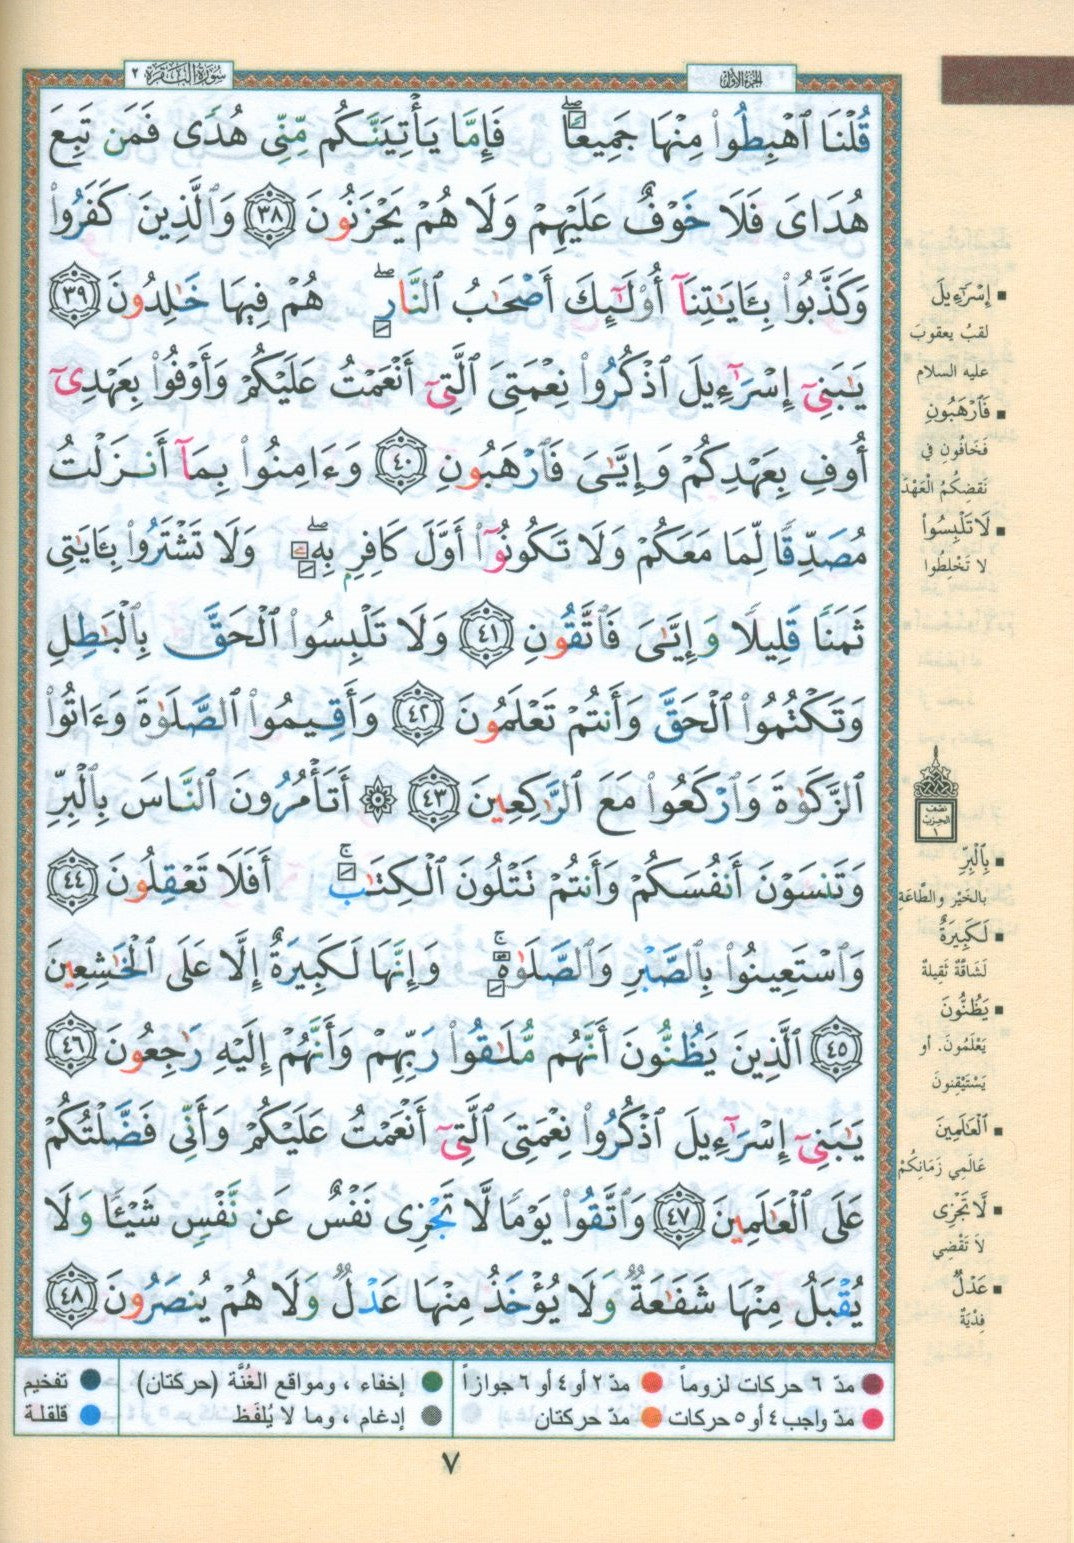 سُورَةُ البَقَرَة ٢
الجزء الأول
قُلْنَا ٱهْبِطُوا۟ مِنْهَا جَمِيعًۭا ۖ فَإِمَّا يَأْتِيَنَّكُم مِّنِّى هُدًۭى فَمَن تَبِعَ
هُدَاىَ فَلَا خَوْفٌ عَلَيْهِمْ وَلَا هُمْ يَحْزَنُونَ ٣٨ وَٱلَّذِينَ كَفَرُوا۟
وَكَذَّبُوا۟ بِـَٔايَـٰتِنَآ أُو۟لَـٰٓئِكَ أَصْحَـٰبُ ٱلنَّارِ ۖ هُمْ فِيهَا خَـٰلِدُونَ ٣٩
يَـٰبَنِىٓ إِسْرَٰٓءِيلَ ٱذْكُرُوا۟ نِعْمَتِىَ ٱلَّتِىٓ أَنْعَمْتُ عَلَيْكُمْ وَأَوْفُوا۟ بِعَهْدِىٓ
أُوفِ بِعَهْدِكُمْ وَإِيَّـٰىَ فَٱرْهَبُونِ ٤٠ وَءَامِنُوا۟ بِمَآ أَنزَلْتُ
مُصَدِّقًۭا لِّمَا مَعَكُمْ وَلَا تَكُونُوٓا۟ أَوَّلَ كَافِرٍۭ بِهِۦ ۖ وَلَا تَشْتَرُوا۟ بِـَٔايَـٰتِى
ثَمَنًۭا قَلِيلًۭا وَإِيَّـٰىَ فَٱتَّقُونِ ٤١ وَلَا تَلْبِسُوا۟ ٱلْحَقَّ بِٱلْبَـٰطِلِ
وَتَكْتُمُوا۟ ٱلْحَقَّ وَأَنتُمْ تَعْلَمُونَ ٤٢ وَأَقِيمُوا۟ ٱلصَّلَوٰةَ وَءَاتُوا۟
ٱلزَّكَوٰةَ وَٱرْكَعُوا۟ مَعَ ٱلرَّٰكِعِينَ ٤٣ ۞ أَتَأْمُرُونَ ٱلنَّاسَ بِٱلْبِرِّ
وَتَنسَوْنَ أَنفُسَكُمْ وَأَنتُمْ تَتْلُونَ ٱلْكِتَـٰبَ ۚ أَفَلَا تَعْقِلُونَ ٤٤
وَٱسْتَعِينُوا۟ بِٱلصَّبْرِ وَٱلصَّلَوٰةِ ۚ وَإِنَّهَا لَكَبِيرَةٌ إِلَّا عَلَى ٱلْخَـٰشِعِينَ
٤٥ ٱلَّذِينَ يَظُنُّونَ أَنَّهُم مُّلَـٰقُوا۟ رَبِّهِمْ وَأَنَّهُمْ إِلَيْهِ رَٰجِعُونَ ٤٦
يَـٰبَنِىٓ إِسْرَٰٓءِيلَ ٱذْكُرُوا۟ نِعْمَتِىَ ٱلَّتِىٓ أَنْعَمْتُ عَلَيْكُمْ وَأَنِّى فَضَّلْتُكُمْ
عَلَى ٱلْعَـٰلَمِينَ ٤٧ وَٱتَّقُوا۟ يَوْمًۭا لَّا تَجْزِى نَفْسٌ عَن نَّفْسٍۢ شَيْـًۭٔا وَلَا
يُقْبَلُ مِنْهَا شَفَـٰعَةٌۭ وَلَا يُؤْخَذُ مِنْهَا عَدْلٌۭ وَلَا هُمْ يُنصَرُونَ ٤٨
▪ إِسْرَٰٓءِيلَ
لقبُ يعقوبَ
عليه السلام
▪ فَٱرْهَبُونِ
فَخَافُونِ في
نَقضِكُمُ الْعَهْدَ
▪ لَا تَلْبِسُوا۟
لا تَخْلِطُوا
نصف
الحزب
١
▪ بِٱلْبِرِّ
بالخَيْرِ والطَّاعَةِ
▪ لَكَبِيرَةٌ
لَشَاقَّةٌ ثَقِيلَةٌ
▪ يَظُنُّونَ
يَعْلَمُونَ. أو
يَسْتَيْقِنونَ
▪ ٱلْعَـٰلَمِينَ
عَالَمِي زَمَانِكُمْ
▪ لَّا تَجْزِى
لاَ تَقْضِي
▪ عَدْلٌ
فِدْيَةٌ
مدّ ٦ حركات لزوماً ● مدّ ٢ أو ٤ أو ٦ جوازاً ● إخفاء ، ومواقع الغُنَّة (حركتان) ● تفخيم
مدّ واجب ٤ أو ٥ حركات ● مدّ حركتان ● إدغام ، وما لا يُلفَظ ● قلقلة
٧